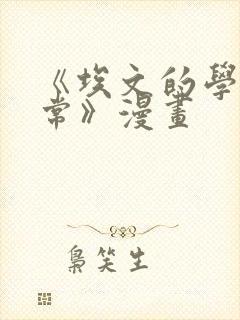 《埃文的學
常》漫畫
梟笑生